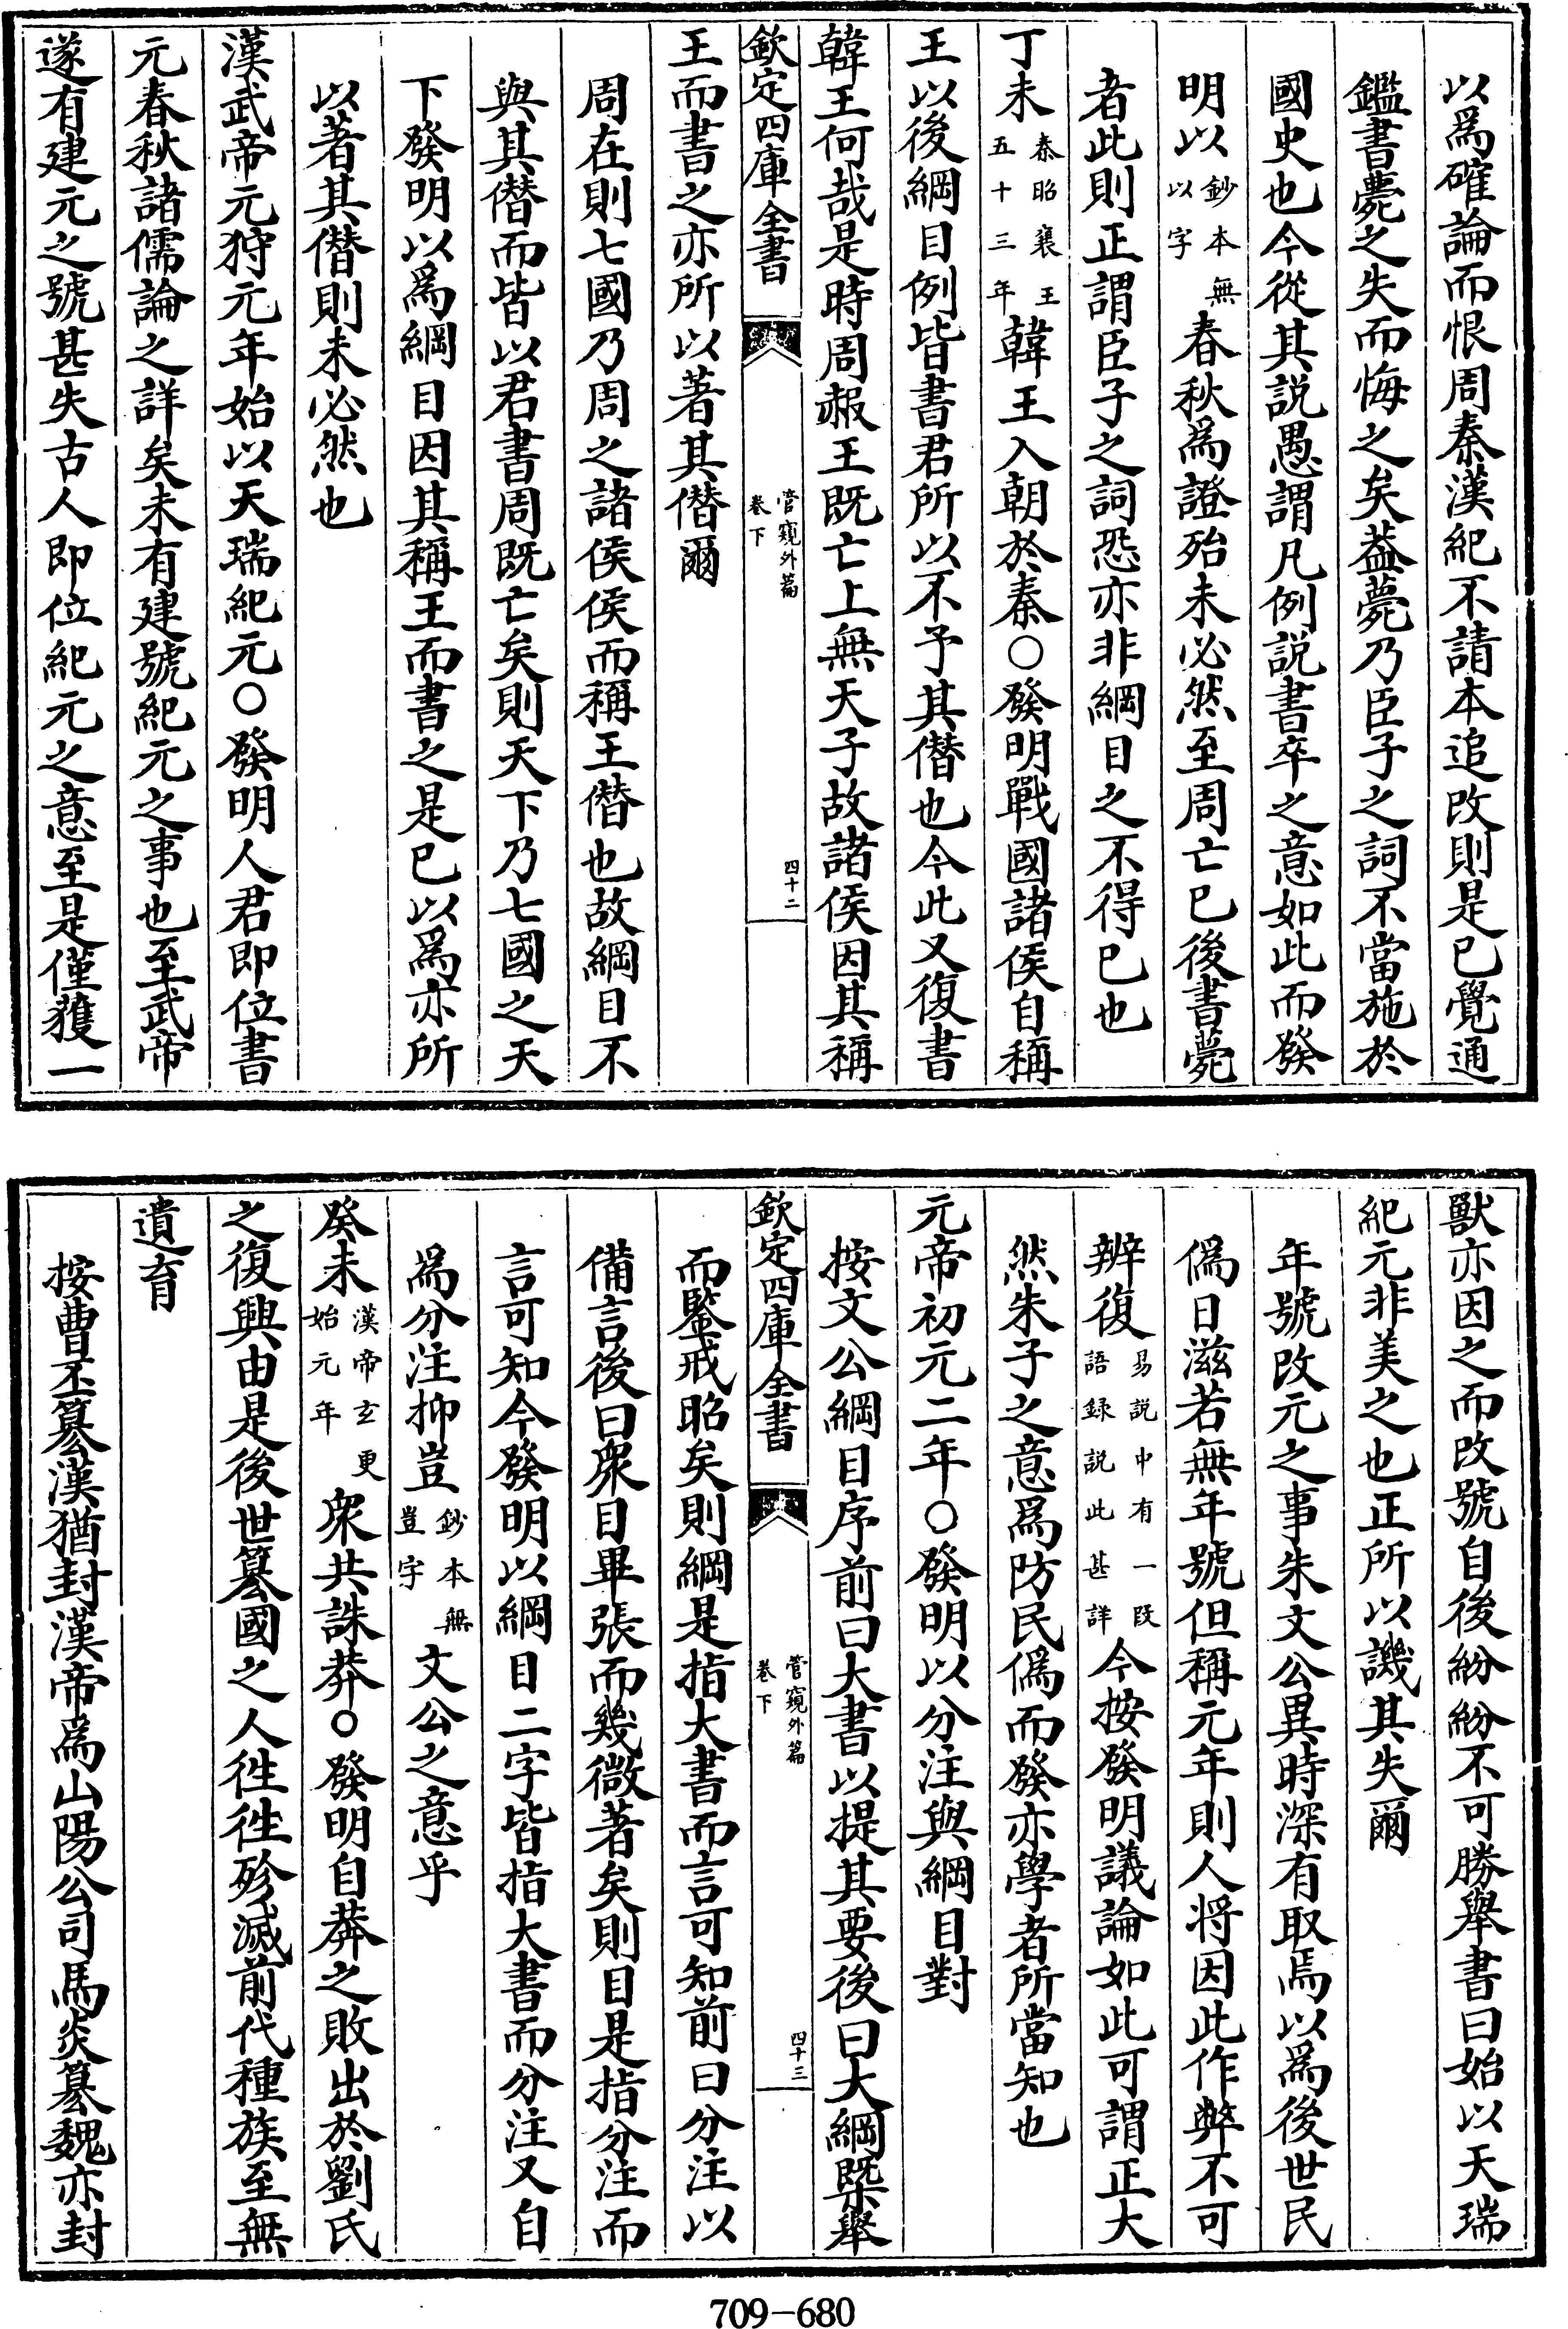 以爲確論而恨周秦漢紀不請本追改則是已覺通
鑑書薨之失而悔之矣葢薨乃臣子之詞不當施於
國史也今從其説愚謂凡例説書卒之意如此而發
明以鈔本無以字春秋爲證殆未必然至周亡已後書薨
者此則正謂臣子之詞恐亦非綱目之不得已也
丁未秦昭襄王五十三年韓王入朝於秦○發明戰國諸侯自稱
王以後綱目例皆書君所以不予其僭也今此又復書
韓王何哉是時周赧王既亡上無天子故諸侯因其稱
欽定四庫全書
管窺外篇
卷下
四十二
王而書之亦所以著其僭爾
周在則七國乃周之諸侯侯而稱王僭也故綱目不
與其僭而皆以君書周既亡矣則天下乃七國之天
下發明以爲綱目因其稱王而書之是已以爲亦所
以著其僭則未必然也
漢武帝元狩元年始以天瑞紀元○發明人君即位書
元春秋諸儒論之詳矣未有建號紀元之事也至武帝
遂有建元之號甚失古人即位紀元之意至是僅獲一
獸亦因之而改號自後紛紛不可勝舉書曰始以天瑞
紀元非美之也正所以譏其失爾
年號改元之事朱文公異時深有取焉以爲後世民
僞日滋若無年號但稱元年則人將因此作弊不可
辨復易説中有一段語録説此甚詳今按發明議論如此可謂正大
然朱子之意爲防民僞而發亦學者所當知也
元帝初元二年○發明以分注與綱目對
按文公綱目序前曰大書以提其要後曰大綱槩舉
欽定四庫全書
管窺外篇
卷下
四十三
而鑒戒昭矣則綱是指大書而言可知前曰分注以
備言後曰衆目畢張而幾微著矣則目是指分注而
言可知今發明以綱目二字皆指大書而分注又自
爲分注抑豈鈔本無豈字文公之意乎
癸未漢帝玄更始元年衆共誅莽○發明自莽之敗出於劉氏
之復興由是後世簒國之人徃徃殄滅前代種族至無
遺育
按曹丕簒漢猶封漢帝爲山陽公司馬炎簒魏亦封
709-680